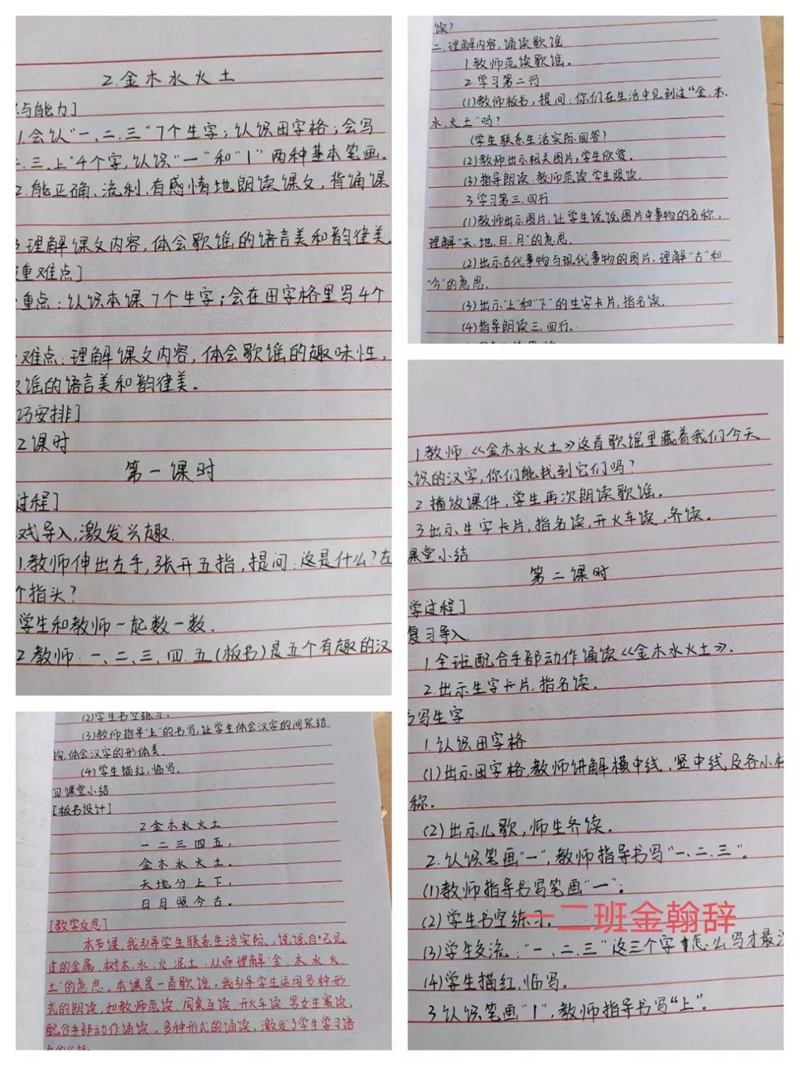 2.金木水火土
与能力]
1.会认"一、二、三"7个生字;认识田字格;会写
二、三、上"4个字,认识"一"和"丨"两种基本笔画。
2.能正确、流利、有感情地朗读课文,背诵课
3.理解课文内容,体会歌谣的语言美和韵律美
重难点]
重点:认识本课7个生字;会在田字格里写4个
难点:理解课文内容,体会歌谣的趣味性,
谣的语言美和韵律美。
巧安排]
2课时
第一课时
过程]
戏导入,激发兴趣.
1.教师伸出左手,张开五指,提问:这是什么?左
个指头?
学生和教师一起数一数.
2.教师:一、二、三、四、五(板书)是五个有趣的汉
读)
二.理解内容,诵读歌谣
1.教师范读歌谣。
2.学习第二行
(1)教师板书,提问:你们在生活中见到过"金、木、
水、火、土"吗?
(学生联系生活实际回答)
(2)教师出示相关图片,学生欣赏。
(3)指导朗读.教师范读,学生跟读。
3.学习第三、四行
(1)教师出示图片,让学生说说图片中事物的名称,
理解"天、地、日、月"的意思。
(2)出示古代事物与现代事物的图片,理解"古"和
"今"的意思。
(3)出示"上"和"下"的生字卡片,指名读。
(4)指导朗读三、四行。
1.教师:《金木水火土》这首歌谣里藏着我们今天
认识的汉字,你们能找到它们吗?
2.播放课件,学生再次朗读歌谣。
3.出示生字卡片,指名读,开火车读,齐读。
课堂小结
第二课时
学过程]
复习导入
1.全班配合手部动作诵读《金木水火土》.
2.出示生字卡片,指名读。
写生字
1.认识田字格
(1)出示田字格,教师讲解横中线、竖中线及各小格
称.
(2)出示儿歌,师生齐读.
2.认识笔画"一",教师指导书写"一、二、三"。
(1)教师指导书写笔画"一"。
(2)学生书空练习.
一二班金翰辞
(3)学生交流:"一、二、三"这三个字怎么写才最
(4)学生描红,临写。
3.认识笔画"丨",教师指导书写"上"。
(2)学生书空练习.
(3)教师指导"上"的书写,让学生体会汉字的间架结
构,体会汉字的形体美.
(4)学生描红,临写.
四课堂小结
[板书设计]
2金木水火土
一二三四五,
金木水火土.
天地分上下,
日月照今古.
[教学反思]
本节课,我引导学生联系生活实际,说说自己见
过的金属、树木、水、火、泥土,从而理解"金、木、水、火、
土"的意思.本课是一首歌谣,我引导学生运用多种形
式的朗读,如教师范读、同桌互读、开火车读、男女生赛读、
配合手部动作诵读,多种形式的诵读,激发了学生学习语